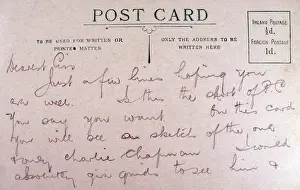 POST CARD
TO BE USED FOR WRITTEN OR
PRINTED MATTER
ONLY THE ADDRESS TO BE
WRITTEN HERE
INLAND POSTAGE
½d.
FOREIGN POSTAGE
1d.
Dearest Cis
Just a few lines hoping you
are well. Is this the sort of PC
you say you want on this card
you will see an sketch of the one
& only Charlie Chapman I would
absolutely give to see him &